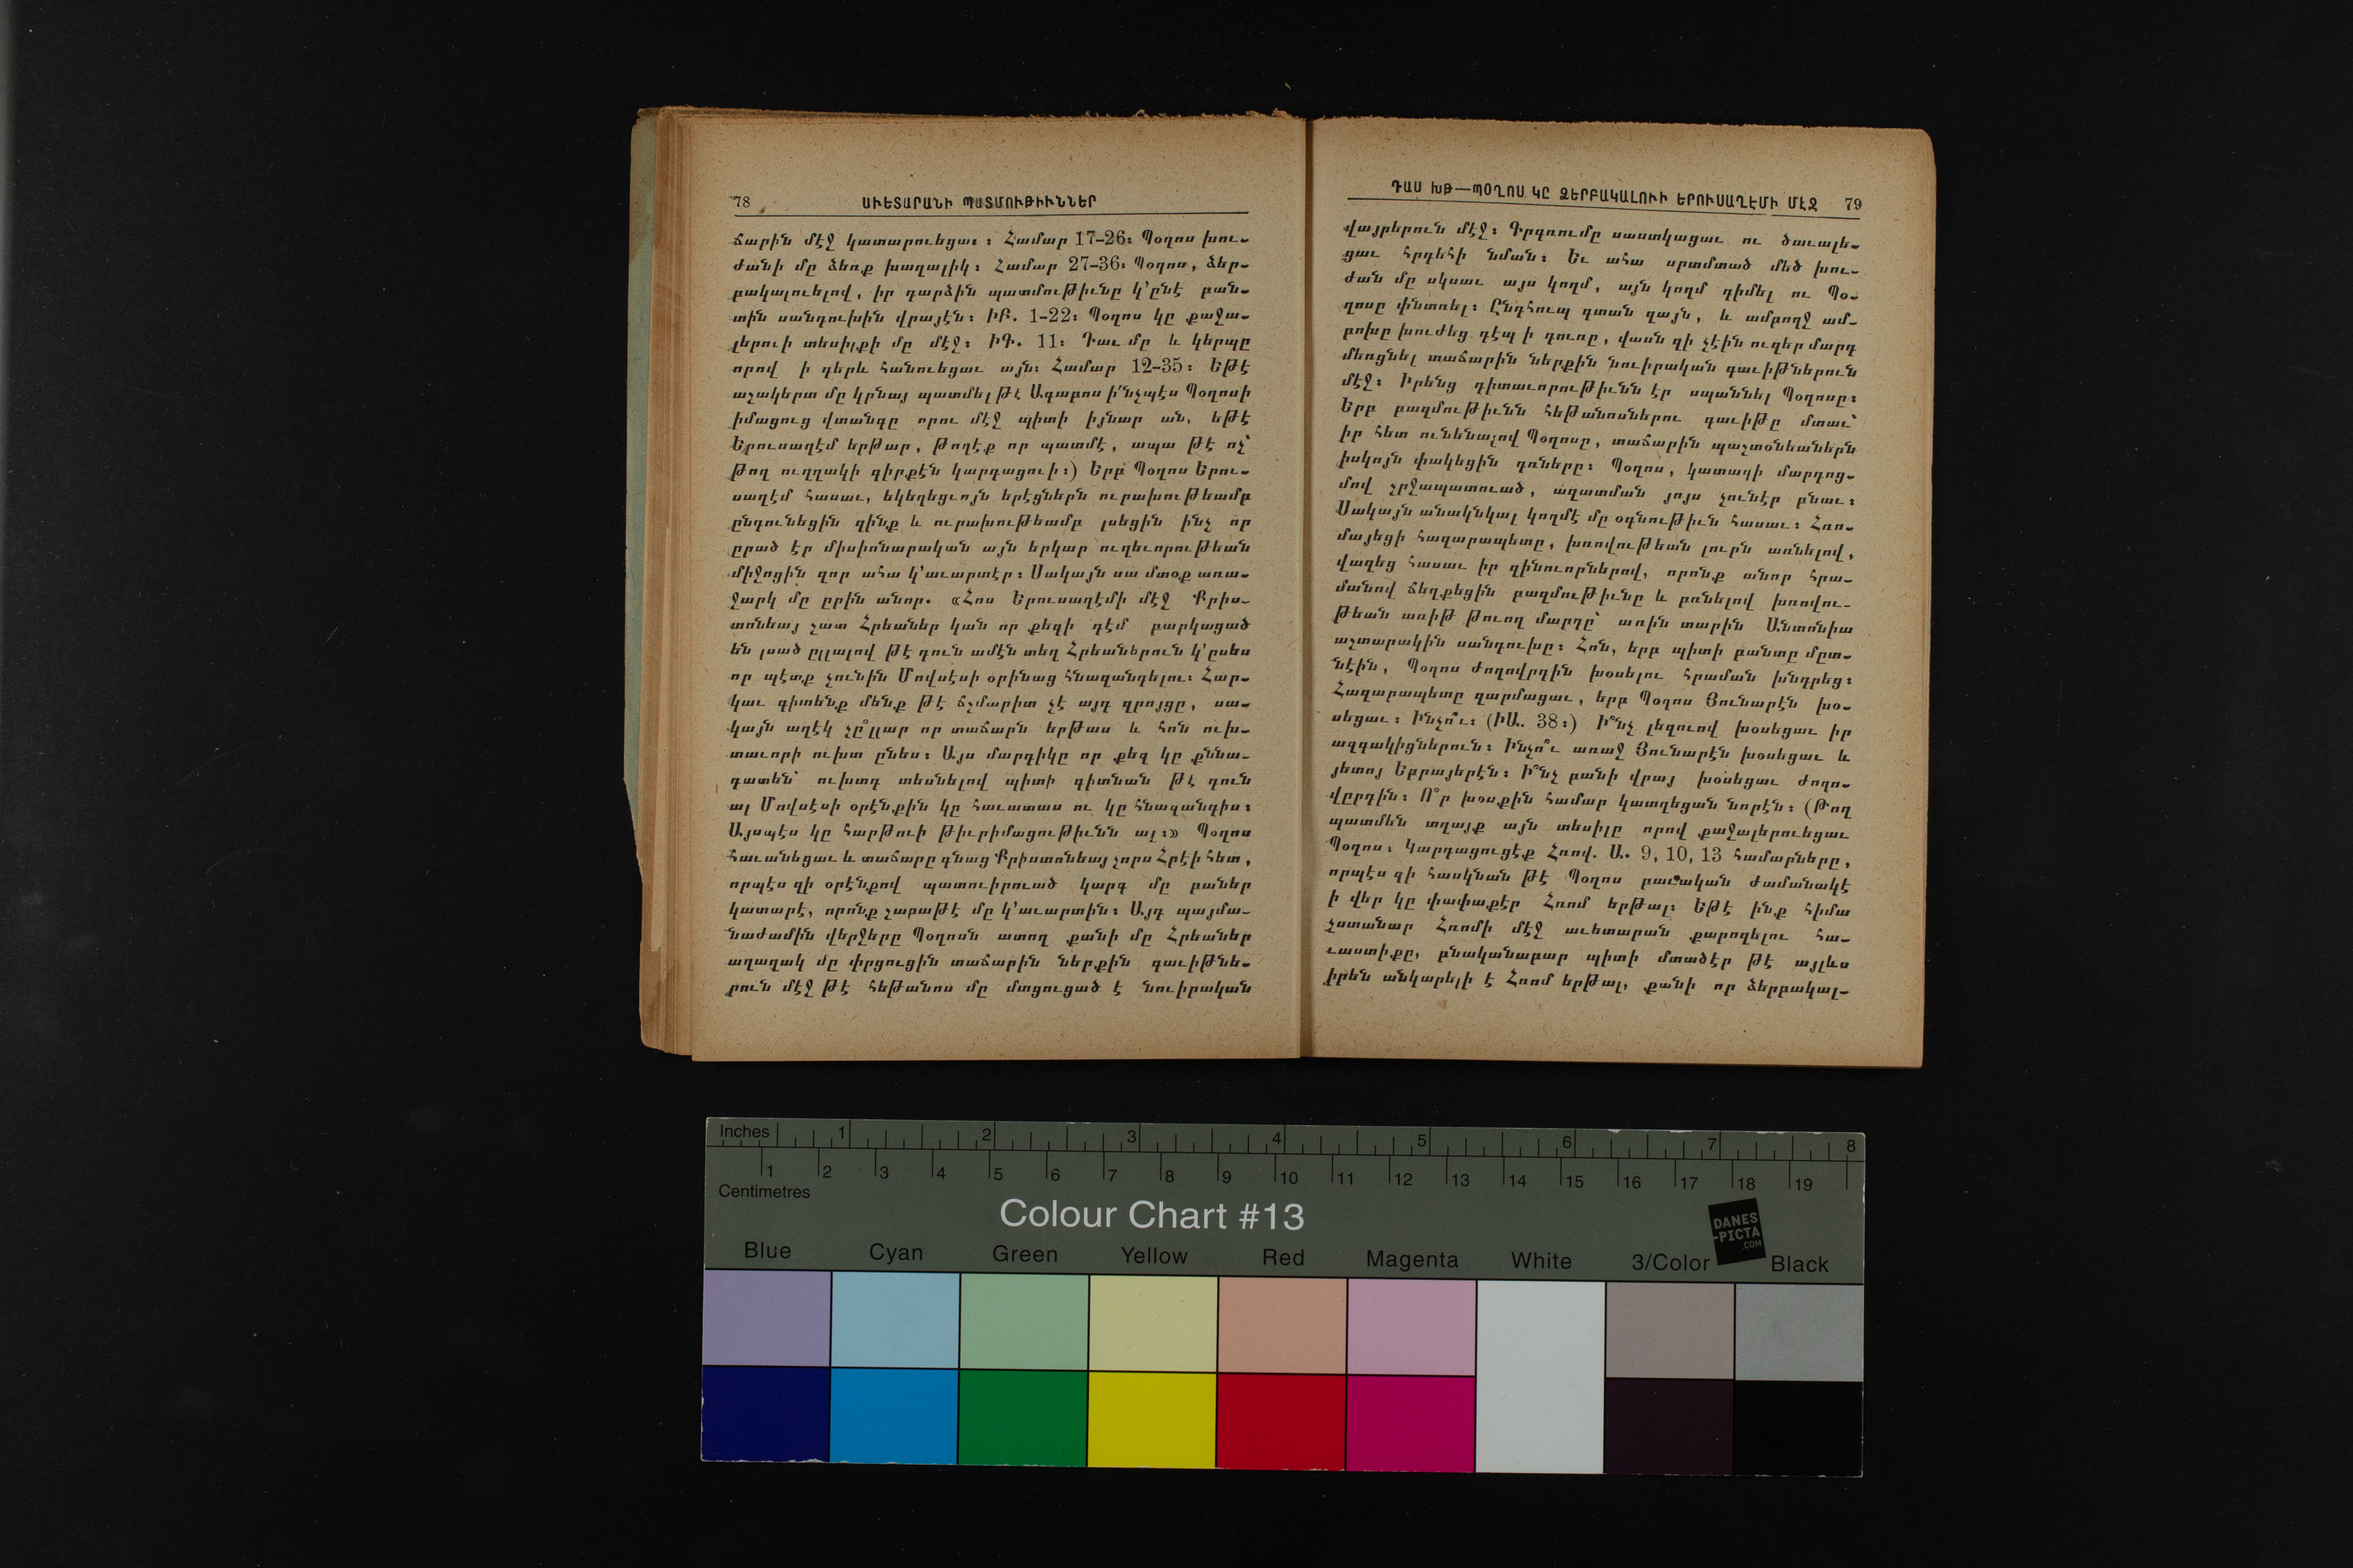 78 ԱՒԵՏԱՐԱՆԻ ՊԱՏՄՈՒԹԻՒՆՆԵՐ
ճարին մէջ կատարուեցաւ։ Համար 17–26։ Պօղոս խու–
ժանի մը ձեռք խաղալիկ։ Համար 27–36։ Պօղոս, ձեր–
բակալուելով, իր դարձին պատմութիւնը կ՚ընէ բան–
տին սանդուխին վրայէն։ ԻԲ. 1–22։ Պօղոս կը քաջա–
լերուի տեսիլքի մը մէջ։ ԻԳ. 11։ Դաւ մը և կերպը
որով ի դերև հանուեցաւ այն։ Համար 12–35։ Եթէ
աշակերտ մը կրնայ պատմել թէ Ագաբոս ի՛նչպէս Պօղոսի
իմացուց վտանգը որու մէջ պիտի իյնար ան, եթէ
Երուսաղէմ երթար, թողէք որ պատմէ, ապա թէ ոչ՝
թող ուղղակի գիրքէն կարդացուի։) Երբ Պօղոս Երու–
սաղէմ հասաւ, եկեղեցւոյն երէցներն ուրախութեամբ
ընդունեցին զինք և ուրախութեամբ լսեցին ինչ որ
ըրած էր միսիոնարական այն երկար ուղեւորութեան
միջոցին զոր ահա կ՚աւարտէր։ Սակայն սա մտօք առա–
ջարկ մը ըրին անոր. «Հոս Երուսաղէմի մէջ Քրիս–
տոնեայ շատ Հրեաներ կան որ քեզի դէմ բարկացած
են լսած ըլլալով թէ դուն ամէն տեղ Հրեաներուն կ՚ըսես
որ պէտք չունին Մովսէսի օրինաց հնազանդելու։ Հար–
կաւ գիտենք մենք թէ ճշմարիտ չէ այդ զրոյցը, սա–
կայն աղէկ չը՞լլար որ տաճարն երթաս և հոն ուխ–
տաւորի ուխտ ընես։ Այս մարդիկը որ քեզ կը քննա–
դատեն՝ ուխտդ տեսնելով պիտի գիտնան թէ դուն
ալ Մովսէսի օրէնքին կը հաւատաս ու կը հնազանդիս։
Այսպէս կը հարթուի թիւրիմացութիւնն ալ։» Պօղոս
հաւանեցաւ և տաճարը գնաց Քրիստոնեայ չորս Հրէի հետ,
որպէս զի օրէնքով պատուիրուած կարգ մը բաներ
կատարէ, որոնք շաբաթէ մը կ՚աւարտին։ Այդ պայմա–
նաժամին վերջերը Պօղոսն ատող քանի մը Հրեաներ
աղաղակ մը փրցուցին տաճարին ներքին գաւիթնե–
րուն մէջ թէ հեթանոս մը մտցուցած է նուիրական
ԴԱՍ ԽԹ—ՊՕՂՈՍ ԿԸ ՁԵՐԲԱԿԱԼՈՒԻ ԵՐՈՒՍԱՂԷՄԻ ՄԷՋ 79
վայրերուն մէջ։ Գրգռումը սաստկացաւ ու ծաւալե–
ցաւ հրդեհի նման։ Եւ ահա սրտմտած մեծ խու–
ժան մը սկսաւ այս կողմ, այն կողմ դիմել ու Պօ–
ղոսը փնտռել։ Ընդհուպ գտան զայն, և ամբողջ ամ–
բոխը խուժեց դէպ ի դուռը, վասն զի չէին ուզեր մարդ
մեռցնել տաճարին ներքին նուիրական գաւիթներուն
մէջ։ Իրենց դիտաւորութիւնն էր սպաննել Պօղոսը։
Երբ բազմութիւնն հեթանոսներու գաւիթը մտաւ՝
իր հետ ունենալով Պօղոսը, տաճարին պաշտօնեաներն
իսկոյն փակեցին դռները։ Պօղոս, կատաղի մարդոց–
մով շրջապատուած, ազատման յոյս չունէր բնաւ։
Սակայն անակնկալ կողմէ մը օգնութիւն հասաւ։ Հռո–
մայեցի հազարապետը, խռովութեան լուրն առնելով,
վազեց հասաւ իր զինուորներով, որոնք անոր հրա–
մանով ճեղքեցին բազմութիւնը և բռնելով խռովու–
թեան առիթ թուող մարդը՝ առին տարին Անտոնիա
աշտարակին սանդուխը։ Հոն, երբ պիտի բանտը մըտ–
նէին, Պօղոս ժողովրդին խօսելու հրաման խնդրեց։
Հազարապետը զարմացաւ, երբ Պօղոս Յունարէն խօ–
սեցաւ։ Ինչո՞ւ։ (ԻԱ. 38։) Ի՞նչ լեզուով խօսեցաւ իր
ազգակիցներուն։ Ինչո՞ւ առաջ Յունարէն խօսեցաւ և
յետոյ Եբրայերէն։ Ի՞նչ բանի վրայ խօսեցաւ ժողո–
վըրդին։ Ո՞ր խօսքին համար կատղեցան նորէն։ (Թող
պատմեն տղայք այն տեսիլը որով քաջալերուեցաւ
Պօղոս։ Կարդացուցէք Հռով. Ա. 9, 10, 13 համարները,
որպէս զի հասկնան թէ Պօղոս բաւական ժամանակէ
ի վեր կը փափաքէր Հռոմ երթալ։ Եթէ ինք հիմա
չստանար Հռոմի մէջ աւետարան քարոզելու հա–
ւաստիքը, բնականաբար պիտի մտածէր թէ այլևս
իրեն անկարելի է Հռոմ երթալ, քանի որ ձերբակալ–
Inches 1 2 3 4 5 6 7 8
1 2 3 4 5 6 7 8 9 10 11 12 13 14 15 16 17 18 19
Centimetres
Colour Chart #13
DANES
-PICTA
.COM
Blue Cyan Green Yellow Red Magenta White 3/Color Black